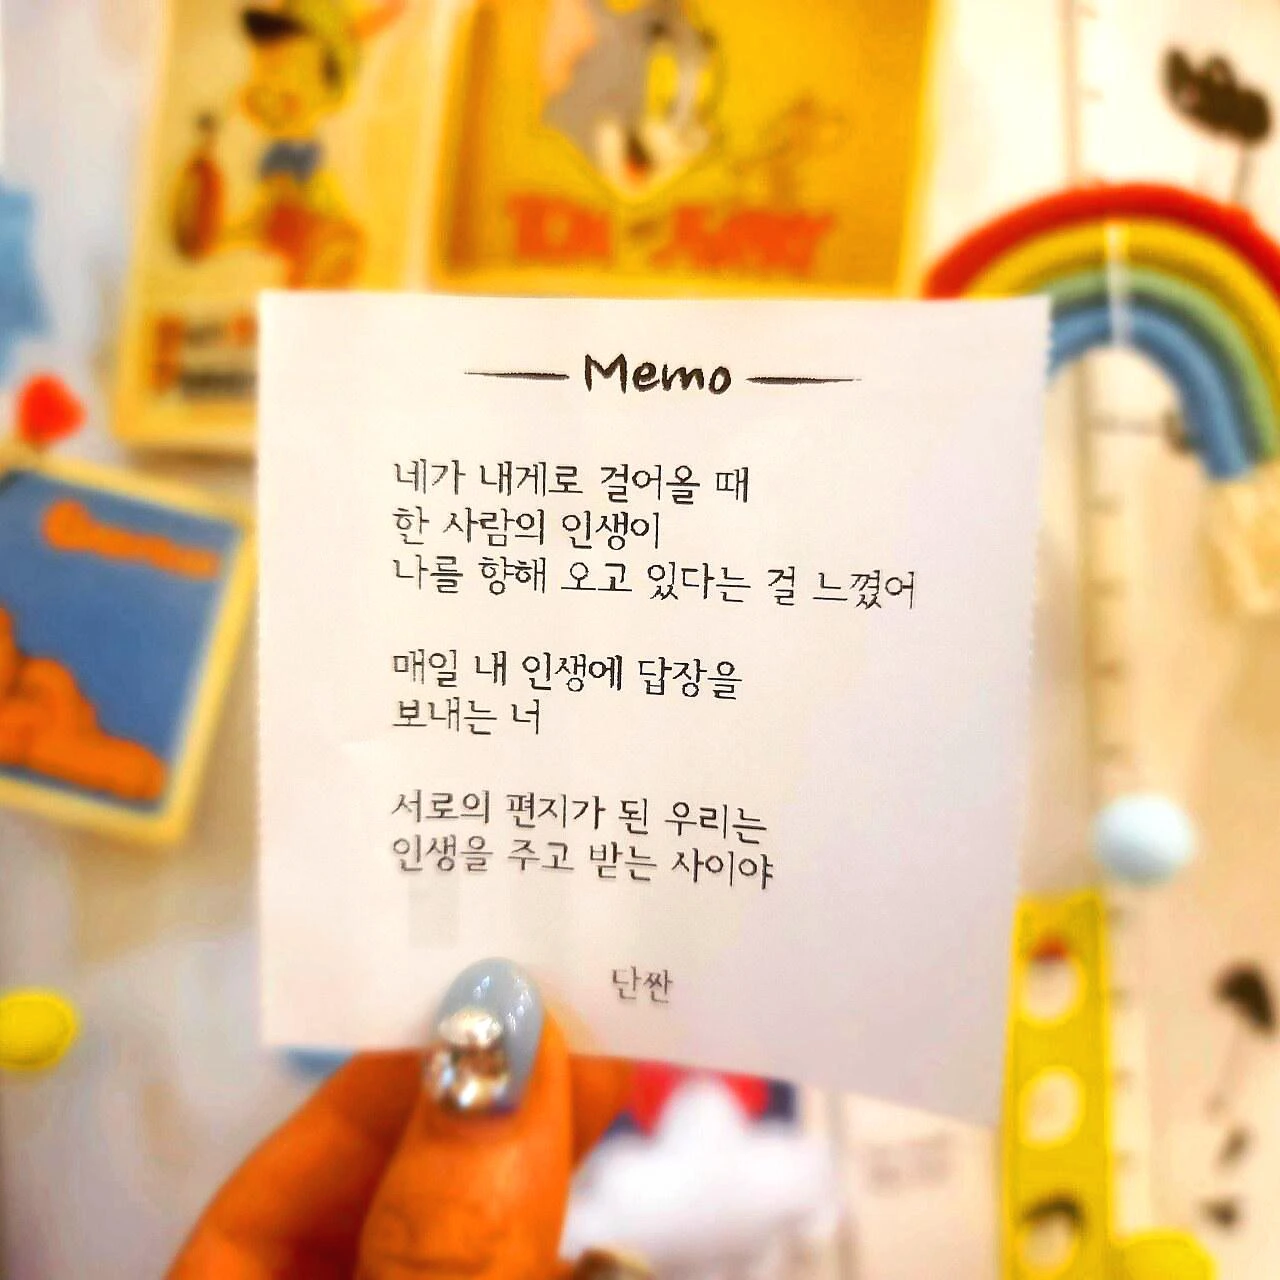 Memo
네가 내게로 걸어올 때
한 사람의 인생이
나를 향해 오고 있다는 걸 느꼈어
매일 내 인생에 답장을
보내는 너
서로의 편지가 된 우리는
인생을 주고 받는 사이야
단짠